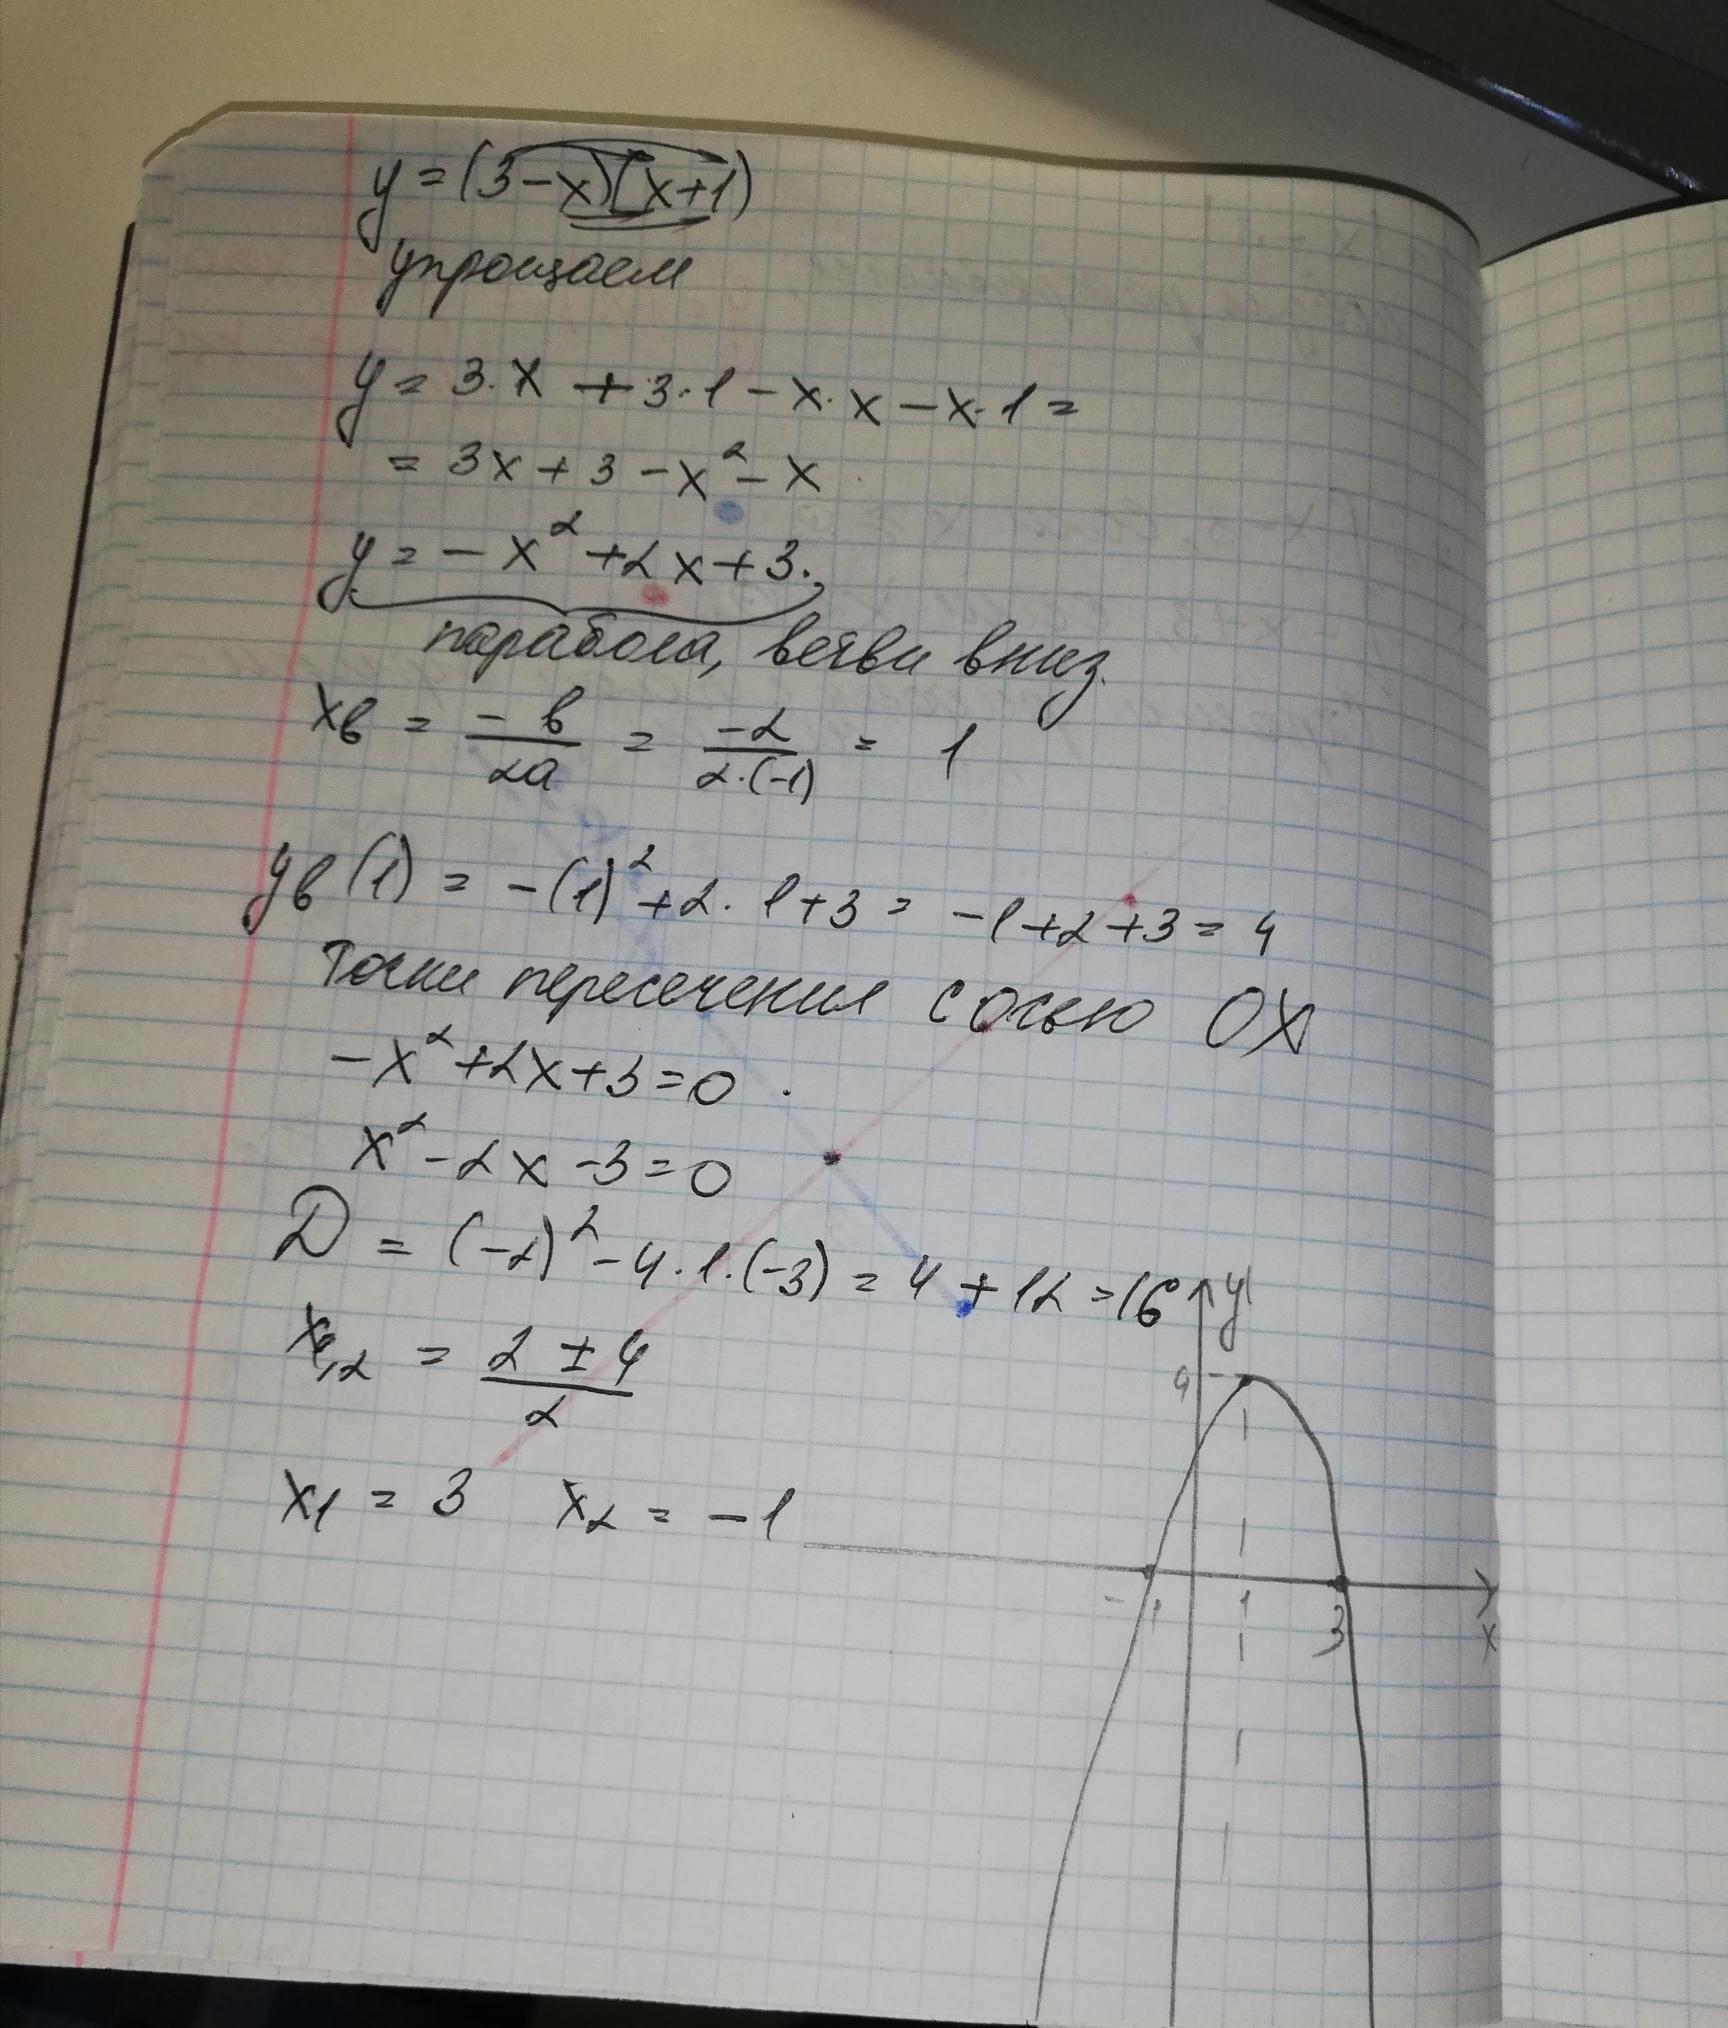 y = (3-x)(x+1)
упрощаем
y = 3·x + 3·1 - x·x - x·1 =
= 3x + 3 - x² - x
y = -x² + 2x + 3.
парабола, ветви вниз.
xв = -в/2a = -2/2·(-1) = 1
yв(1) = -(1)² + 2·1+3 = -1+2+3 = 4
Точки пересечения с осью OX
-x² + 2x + 3 = 0
x² - 2x - 3 = 0
D = (-2)² - 4·1·(-3) = 4 + 12 = 16
x1,2 = 2 ± 4/2
x1 = 3 x2 = -1
y
4
-1 1 3 x